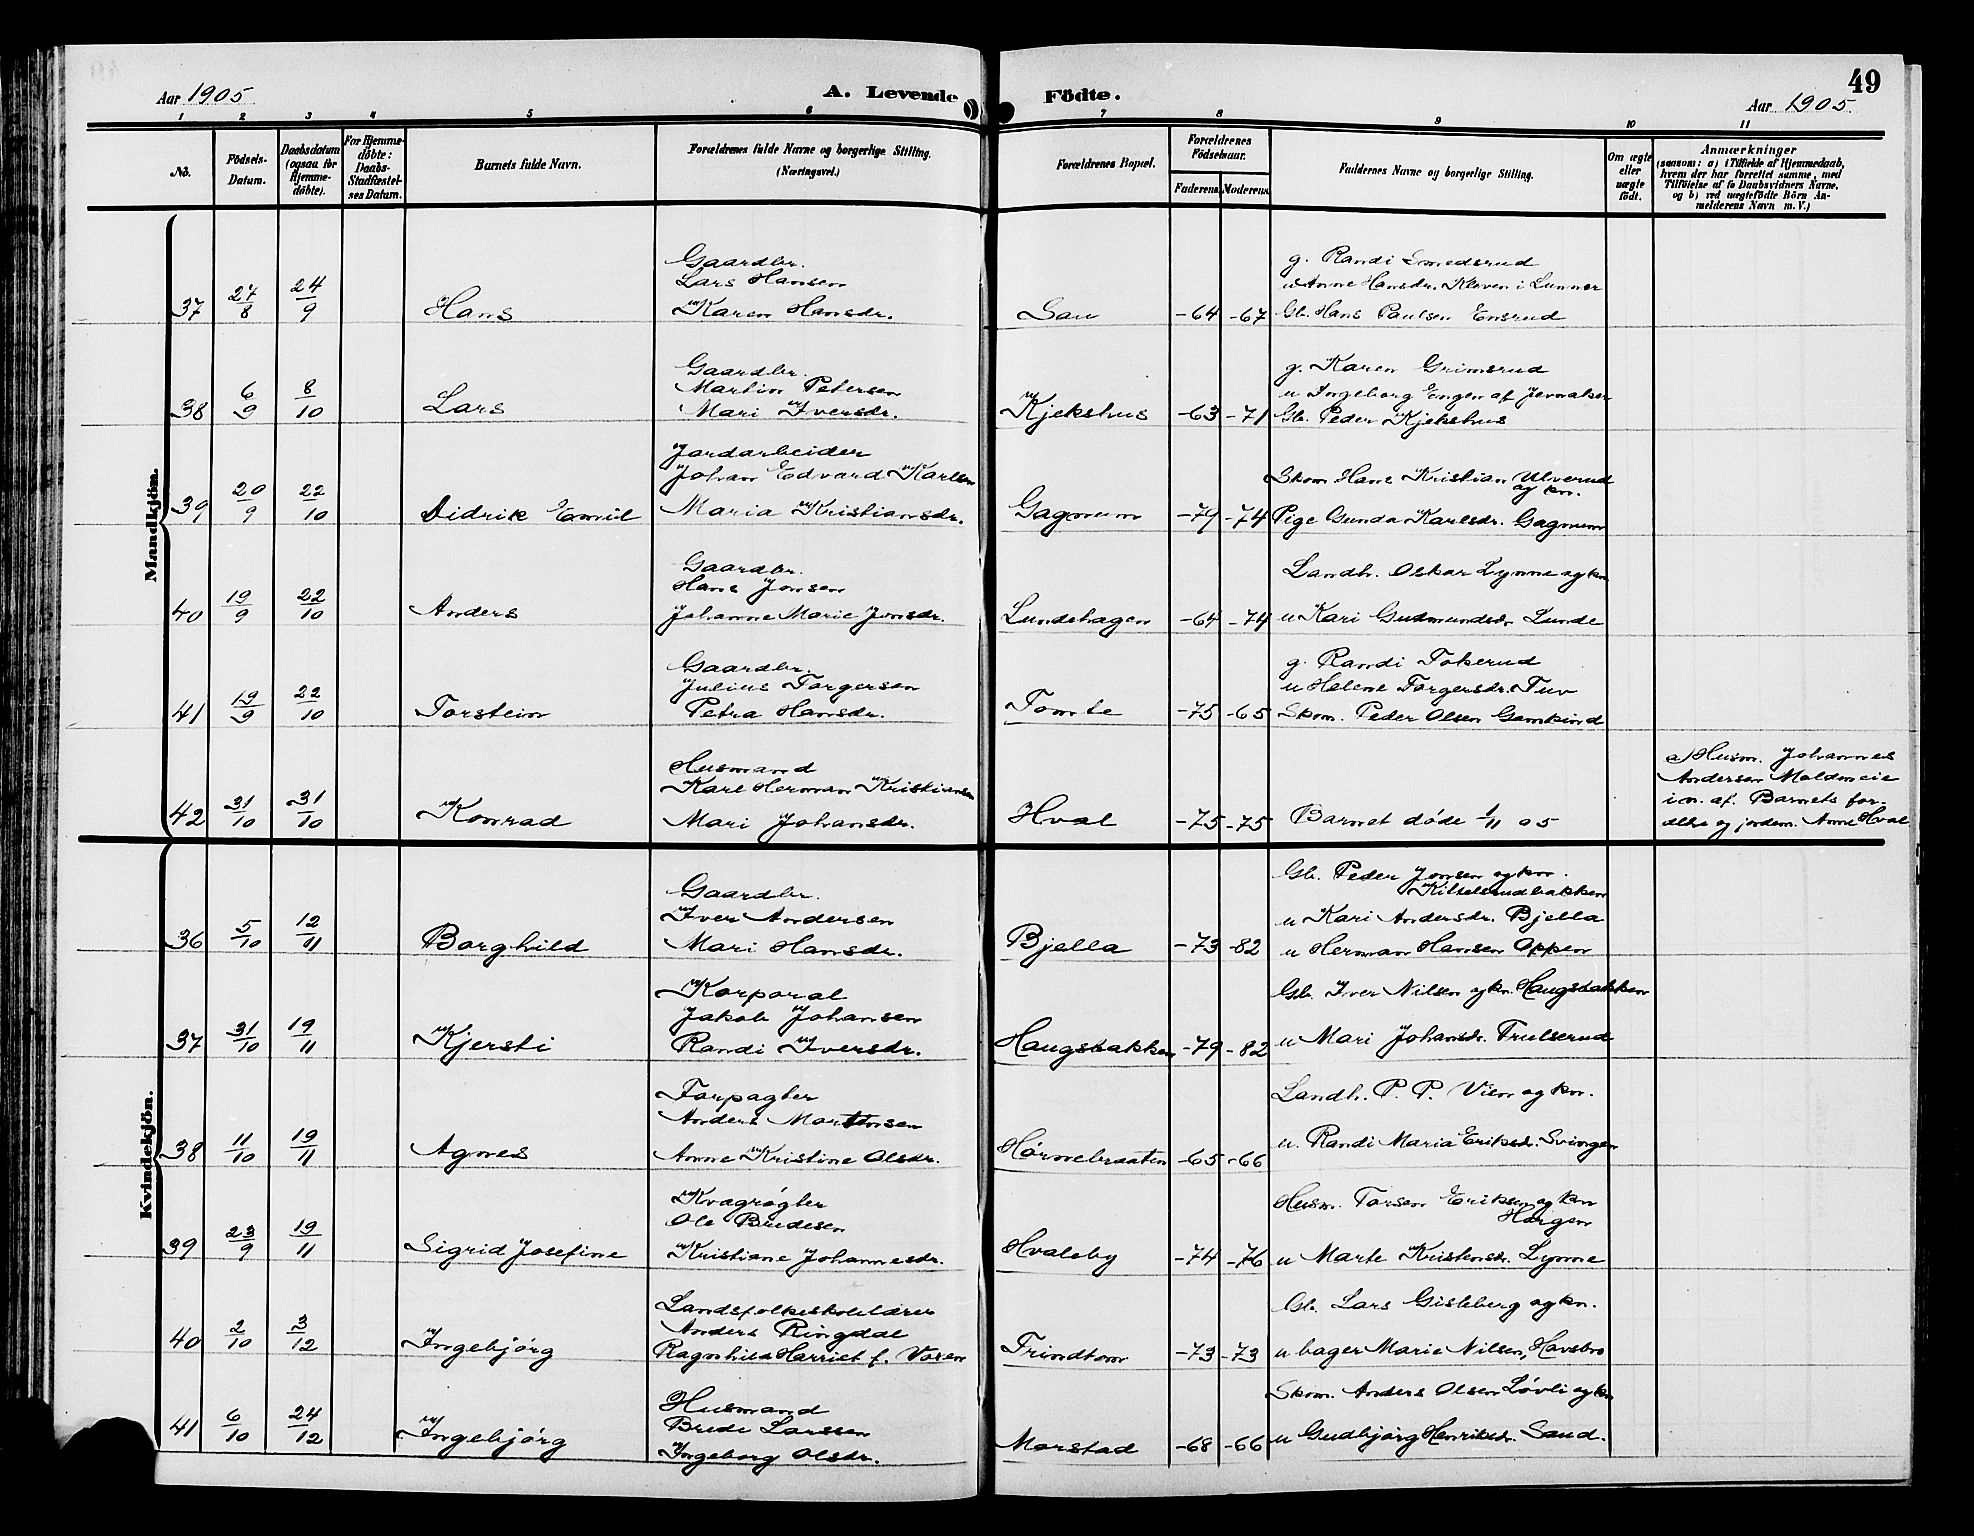 49
Aar 1905
A. Levende
Födte.
Aar 1905.
1 2 3 4 5 6 7 8 9 10 11
No.
Födsels-
Datum.
Daabsdatum
(ogsaa for
Hjemme-
döbte).
For Hjemme-
döbte:
Daabs-
Stadfæstel-
ses Datum.
Barnets fulde Navn.
Forældrenes fulde Navne og borgerlige Stilling.
(Næringsvei.)
Forældrenes Bopæl.
Forældrenes
Födselsaar.
Faderens.
Moderens.
Faddernes Navne og borgerlige Stilling.
Om ægte
eller
uægte
födt.
Anmærkninger
(saasom: a) i Tilfælde af Hjemmedaab,
hvem der har forrettet samme, med
Tilföielse af to Daabsvidners Navne,
og b) ved uægtefödte Börn An-
melderens Navn m. V.)
Mandkjön.
37
27/8
24/9
Hans
Gaardbr.
Lars Hansen
Karen Hansdr.
Sau
-64
-67
g. Randi Smedsrud
u Anne Hansdr. Kleven i Lunner
Gb. Hans Paulsen Ensrud
38
6/9
8/10
Lars
Gaardbr.
Martin Petersen
Mari Iversdr.
Kjekshus
-63
-71
g. Karen Grimsrud
u Ingeborg Engen af Jevnaker
Gb. Peder Kjekshus
39
20/9
22/10
Didrik Emil
Jordarbeider
Johan Edvard Karlsen
Maria Kristiansdr.
Gagnum
-79
-74
Skom. Hans Kristian Ulverud
og kn.
Pige Gunda Karlsdr. Gagnum
40
19/9
22/10
Anders
Gaardbr.
Hans Jonsen
Johanne Marie Jonsdr.
Lundehagen
-64
-74
Landh. Oskar Lynne og kn
u Kari Gudmundsdr Lunde
41
19/9
22/10
Torstein
Gaardbr.
Julius Torgersen
Petra Hansdr.
Tomte
-75
-65
g. Randi Tokerud
u Helene Torgersdr. Tuv
Skom. Peder Olsen Gamkind
42
31/10
31/10
Konrad
Husmand
Karl Herman Kristiansen
Mari Johansdr.
Hval
-75
-75
Barnet døde 1/11 05
a) Husm. Johannes
Andersen Moldmeie
i n. af. Barnets for-
ældre og jordem. Anne Hval
Kvindekjön.
36
5/10
12/11
Borghild
Gaardbr.
Iver Andersen
Mari Hansdr.
Bjella
-73
-82
Gb. Peder Jonsen og kn.
Kittelsrudbakken
u Kari Andersdr. Bjella
u Herman Hansen Oppen
37
31/10
19/11
Kjersti
Korporal
Jakob Johansen
Randi Iversdr.
Haugsbakken
-79
-82
Gb. Iver Nilsen og kn. Haugsbakken
u Mari Johansdr. Trulserud
38
11/10
19/11
Agnes
Forpagter
Anders Mortensen
Anne Kristine Olsdr.
Hørnebraaten
-65
-66
Landh. P. P. Vien og kn.
u. Randi Maria Eriksdr. Svingen
39
23/9
19/11
Sigrid Josefine
Kvægrøgter
Ole Bredesen
Kristiane Johannesdr.
Hvaleby
-74
-76
Husm. Torsen Eriksen og kn
Horgen
u Marte Kristensdr. Lynne
40
2/10
3/12
Ingebjørg
Landsfolkeskolelærer
Anders Ringdal
Ragnhild Harriet f. Voren
Trindtom
-73
-73
Gb. Lars Gisleberg og kn.
u bager Marie Nilsen, Havsbro
41
6/10
24/12
Ingebjørg
Husmand
Brede Larssen
Ingeborg Olsdr.
Morstad
-68
-66
Skom. Anders Olsen Løvli og kn
u Gudbjørg Henriksdr. Sand.